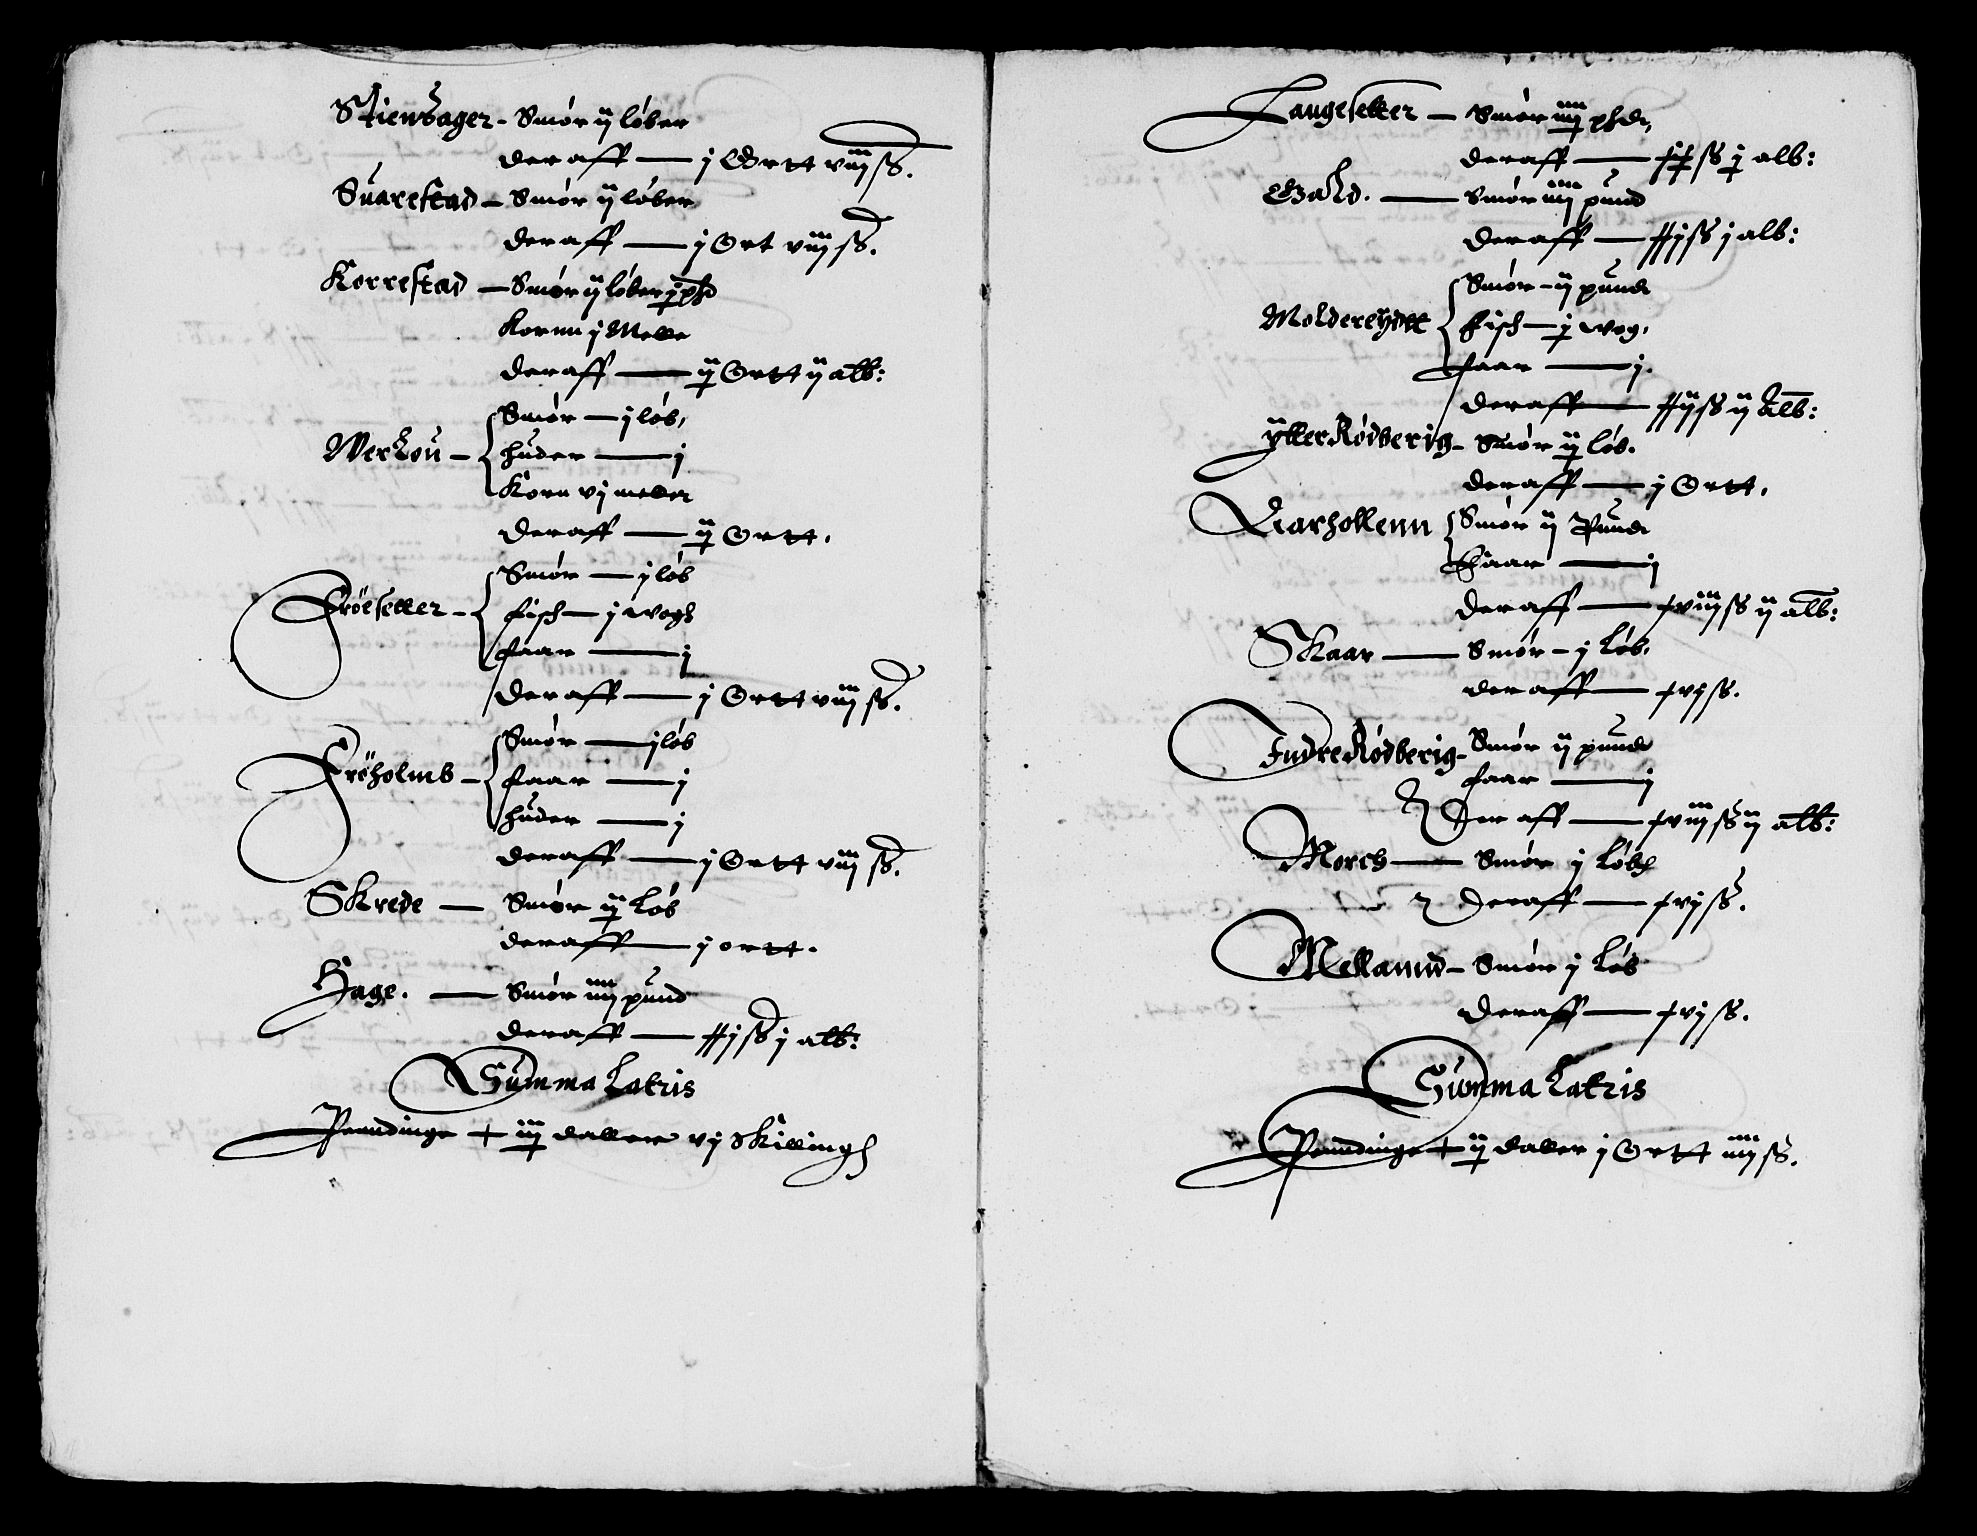 Stiensager - Smør ij løber
der aff — j Ortt viij ß.
Suarestad - Smør ij løber
der aff — j Ort viij ß.
Korrestad — Smør ij løber j pd
Kornn j Melle
der aff — ij Ortt ij alb:
Smør — j løb,
Werkou - huder — j
Korn vj meller
der aff — ij Ortt.
Smør — j løb
Frøesetter - fisch — j wogh
faar — j
der aff — j Ortt viij ß.
Smør — j løb
Frøholmb - faar — j
huder — j
der aff — j Ortt viij ß.
Skrede — Smør ij Løb
der aff — j ortt.
Hage. — Smør iiij pund
der aff — xxj ß j alb:
Summa Latris
Penndinge + iij daller vj Skillingh
Langesetter — Smør iiij pd,
der aff — xx ß j alb:
Bakd. — Smør iiij pund
der aff — xxj ß j alb:
Smør - ij pund
Moldereydtt fisch — j wog,
faar — j.
der aff — xxij ß ij alb:
ytter Rødberig - Smør ij løb.
der aff — j Ortt,
Quarhollenn Smør ij Pund
faar — j
der aff — xviij ß ij alb:
Skaar — Smør - j Løb,
der aff — xvj ß.
Indre Rødberig - Smør ij pund
faar — j
Der aff — xviij ß ij alb:
Morch — Smør j Løb
Der aff — xvj ß.
Mellannd - Smør j Løb
der aff — xvj ß.
Summa Latris
Penndinge + ij daller j Ortt iiij ß.